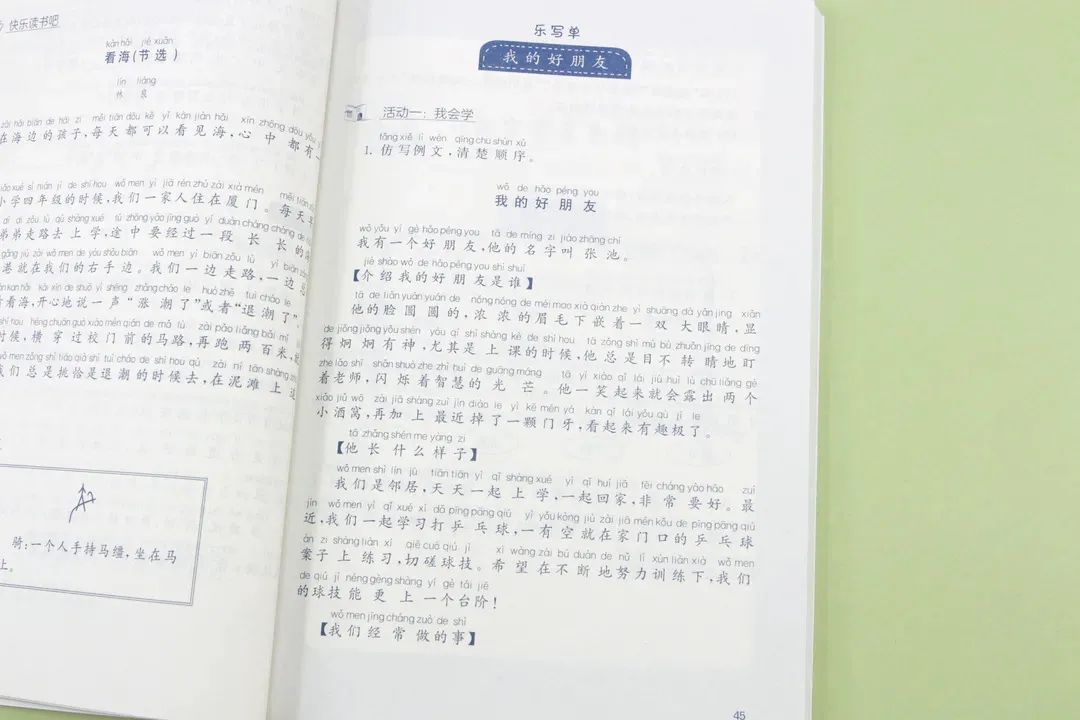 快乐读书吧
kàn hǎi jié xuǎn
看海(节选)
lín liáng
林 良
在海边的孩子,每天都可以看见海,心中都有一
小学四年级的时候,我们一家人住在厦门。每天早
弟弟走路去上学,途中要经过一段长长的海
港就在我们的右手边。我们一边走路,一边
看海,开心地说一声“涨潮了”或者“退潮了”。
时候,横穿过校门前的马路,再跑两百米,就
我们总是挑恰是退潮的时候去,在泥滩上
骑:一个人手持马缰,坐在马
上。
乐写单
我的好朋友
活动一:我会学
fǎng xiě lì wén qīng chu shùn xù
1. 仿写例文,清楚顺序。
wǒ de hǎo péng you
我的好朋友
wǒ yǒu yí gè hǎo péng you tā de míng zi jiào zhāng chí
我有一个好朋友,他的名字叫张池。
jiè shào wǒ de hǎo péng you shì shuí
【介绍我的好朋友是谁】
tā de liǎn yuán yuán de nóng nóng de méi mao xià qiàn zhe yì shuāng dà yǎn jing xiǎn
他的脸圆圆的,浓浓的眉毛下嵌着一双大眼睛,显
de jiǒng jiǒng yǒu shén yóu qí shì shàng kè de shí hou tā zǒng shì mù bù zhuǎn jīng de dīng
得炯炯有神,尤其是上课的时候,他总是目不转睛地盯
zhe lǎo shī shǎn shuò zhe zhì huì de guāng máng tā yí xiào qǐ lái jiù huì lù chū liǎng gè
着老师,闪烁着智慧的光芒。他一笑起来就会露出两个
xiǎo jiǔ wō zài jiā shàng zuì jìn diào le yì kē mén yá kàn qǐ lái yǒu qù jí le
小酒窝,再加上最近掉了一颗门牙,看起来有趣极了。
tā zhǎng shén me yàng zi
【他长什么样子】
wǒ men shì lín jū tiān tiān yì qǐ shàng xué yì qǐ huí jiā fēi cháng yào hǎo zuì
我们是邻居,天天一起上学,一起回家,非常要好。最
jìn wǒ men yì qǐ xué xí dǎ pīng pāng qiú yì yǒu kòng jiù zài jiā mén kǒu de pīng pāng qiú
近,我们一起学习打乒乓球,一有空就在家门口的乒乓球
àn zi shàng liàn xí qiē cuō qiú jì xī wàng zài bú duàn de nǔ lì xùn liàn xià wǒ men
案子上练习,切磋球技。希望在不断地努力训练下,我们
de qiú jì néng gèng shàng yí gè tái jiē
的球技能更上一个台阶!
wǒ men jīng cháng zuò de shì
【我们经常做的事】
45